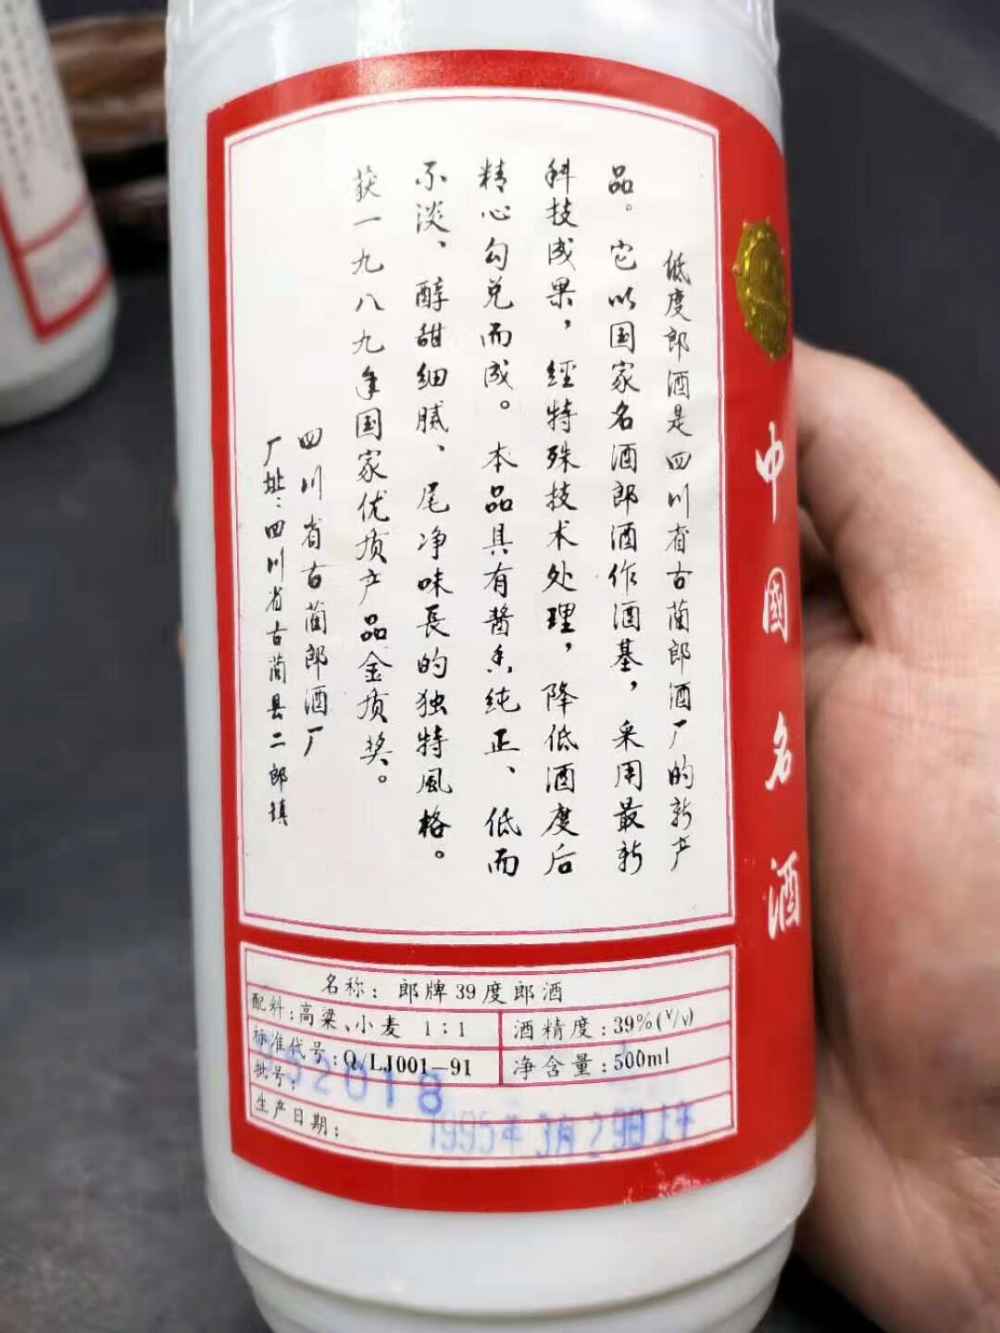 低度郎酒是四川省古蔺郎酒厂的新产
品。它以国家名酒郎酒作酒基，采用最新
科技成果，經特殊技术处理，降低酒度后
精心勾兑而成。本品具有醬香纯正、低而
不淡、醇甜细腻、尾净味長的独特風格。
获一九八九年国家优质产品金质奖。
四川省古蔺郎酒厂
厂址：四川省古蔺县二郎镇
中國名酒
名称：郎牌39度郎酒
配料：高粱、小麦 1：1
酒精度：39%(V/V)
标准代号：Q/LJ001-91
净含量：500ml
批号：
生产日期：
1995年3月29日上午